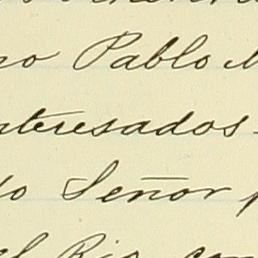 no Pablo
nteresados
do Señor
el Rio con